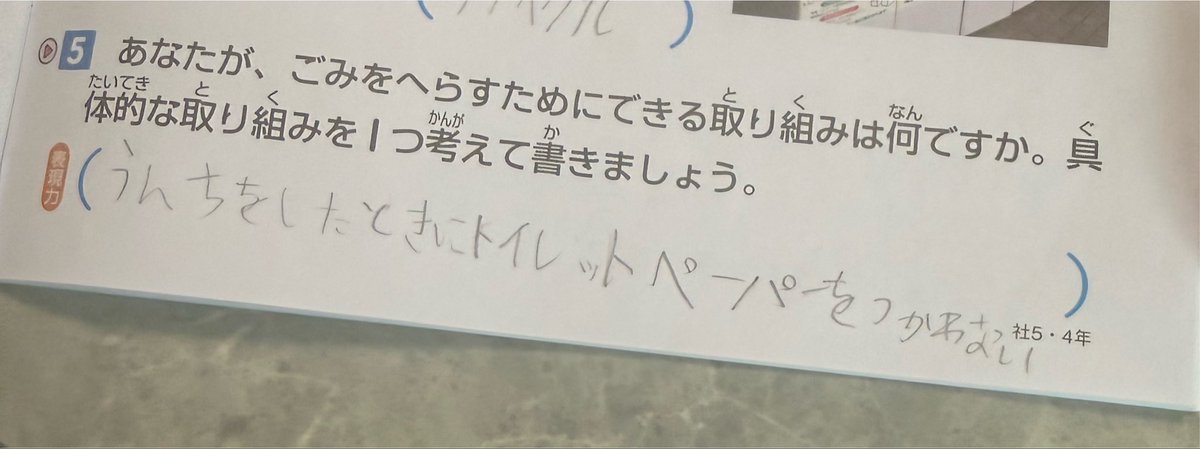 5 あなたが、ごみをへらすためにできる取り組みは何ですか。具
体的な取り組みを1つ考えて書きましょう。
表現力
(うんちをしたときにトイレットペーパーをつかわない)
社5・4年